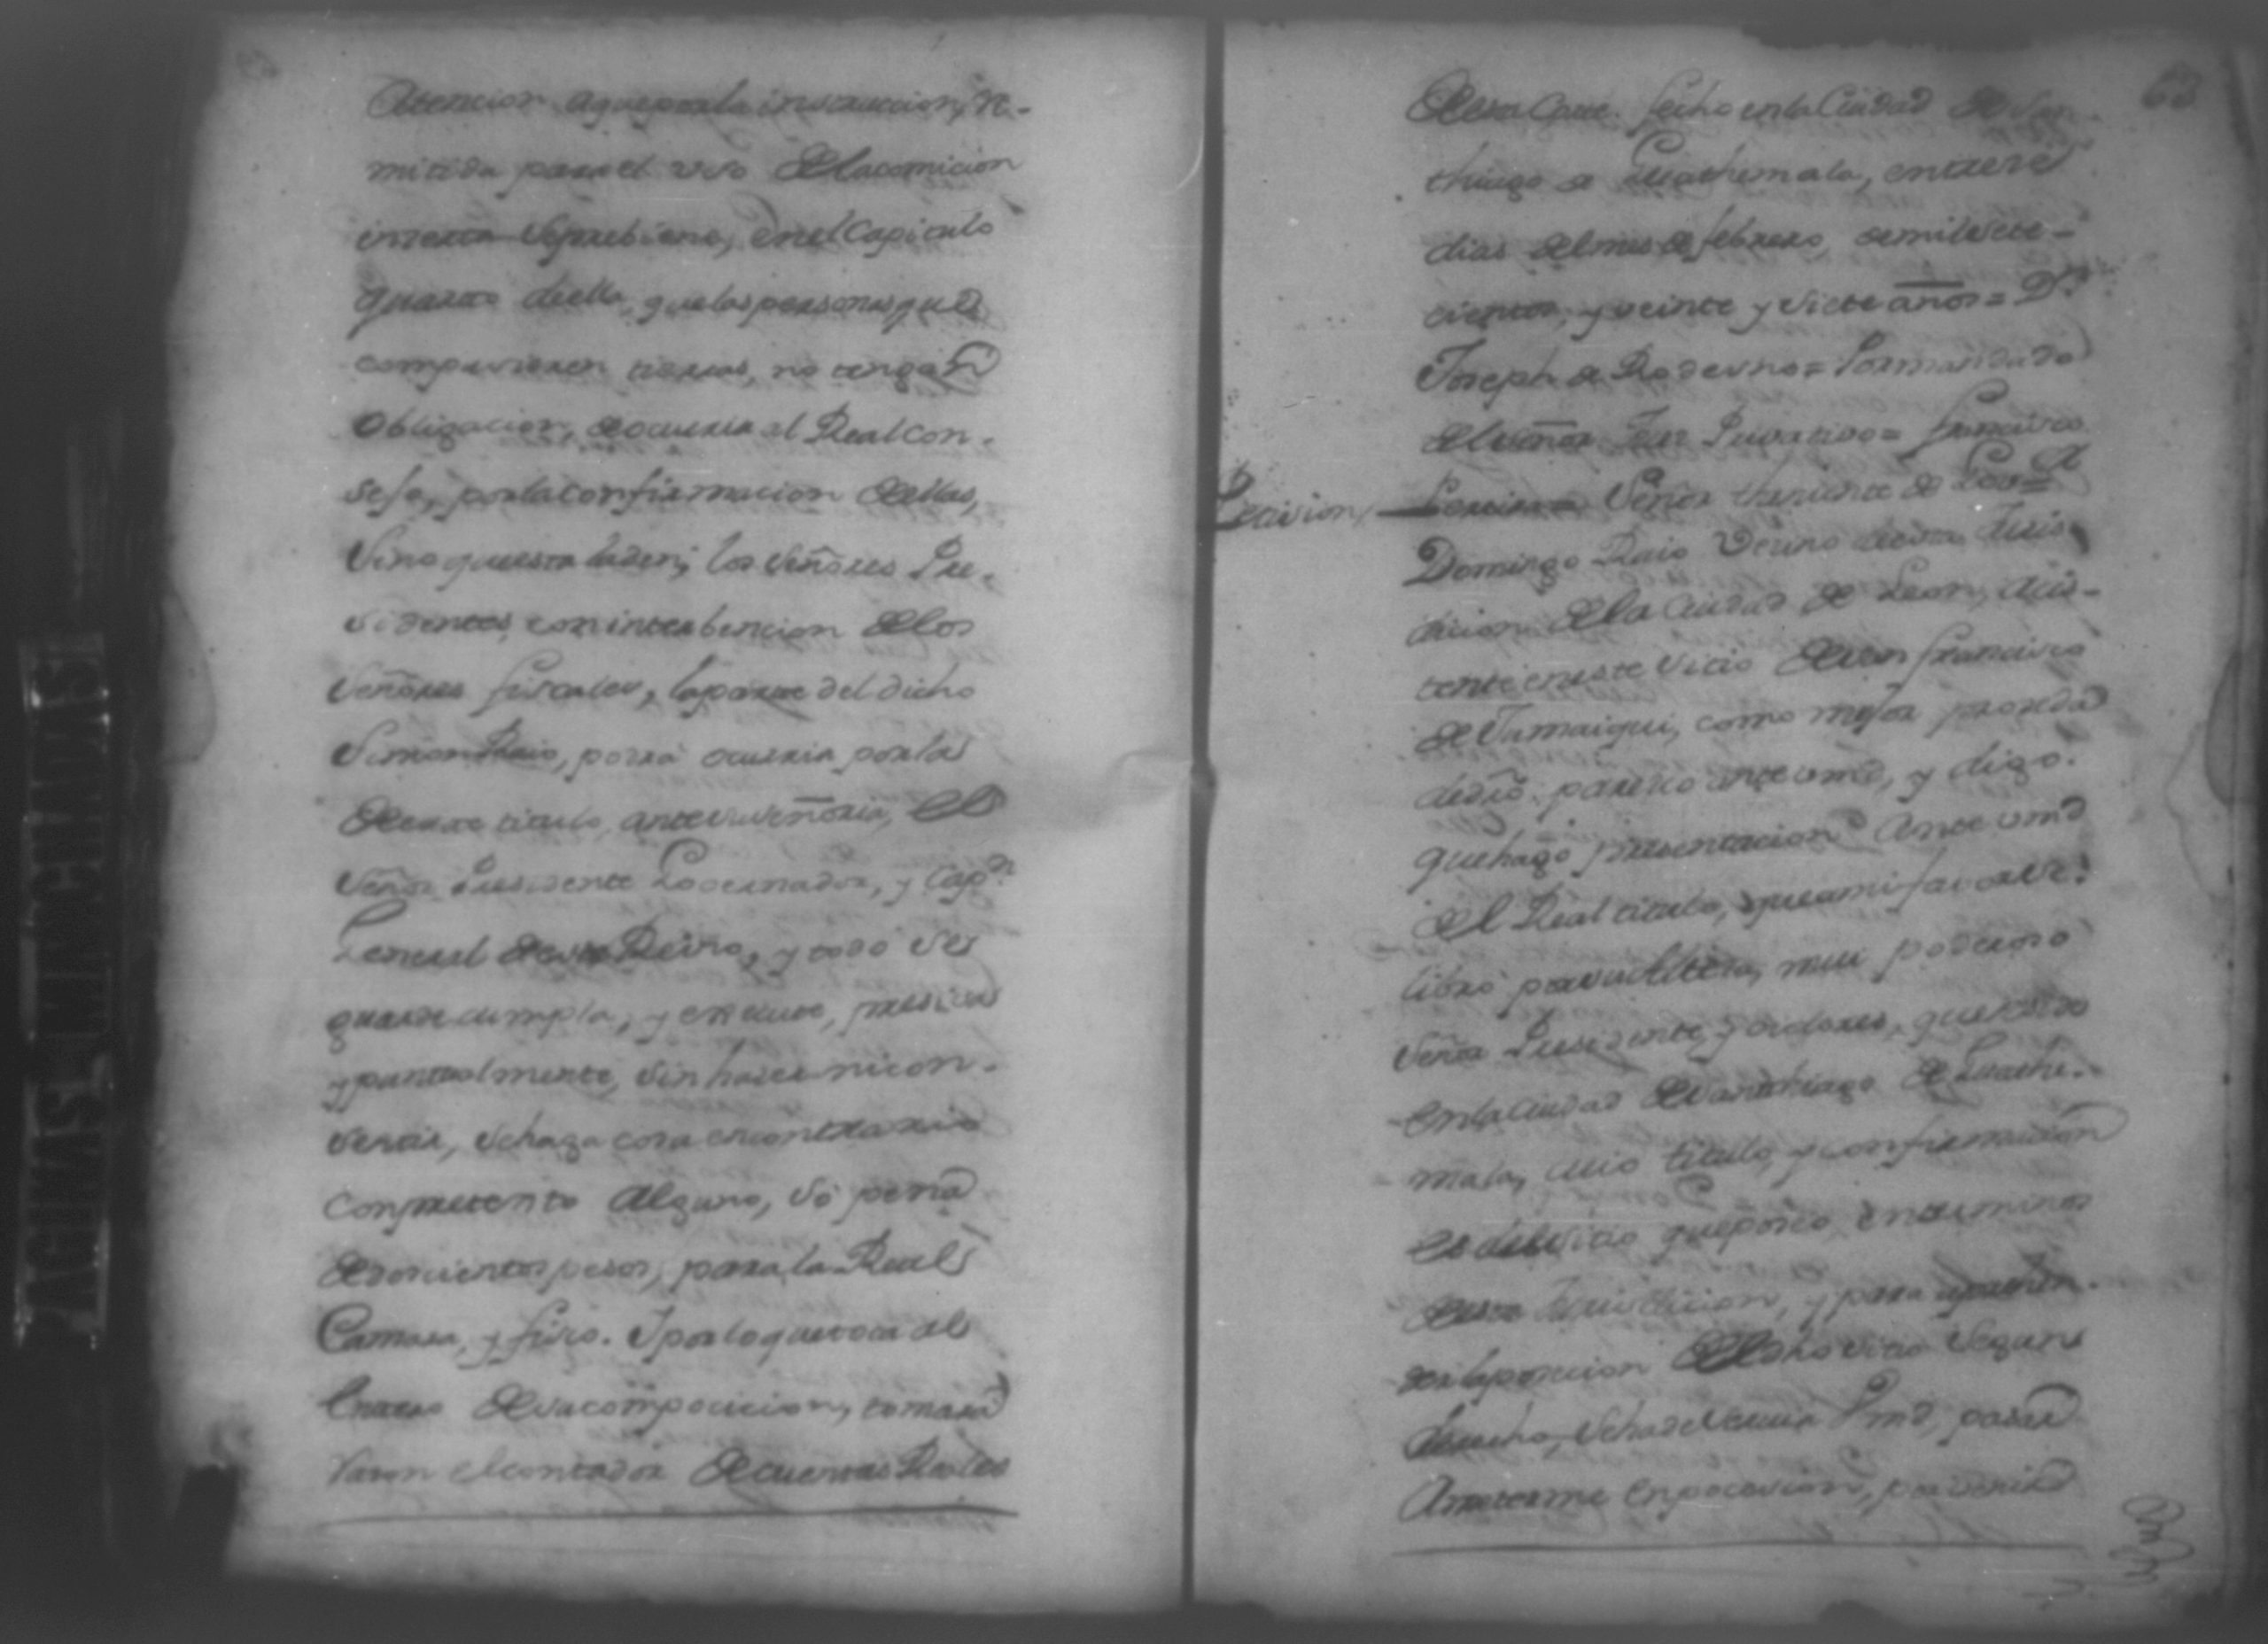 Atencion aque por la instruccion, re-
mitida para el uso de la comicion
inserta se previene, en el Capitulo
quarto de ella, que las personas que
compusieren tierras, no tengan
obligacion, de ocurrir al Real con-
sejo, por la confirmacion de ellas,
sino que esta la den, los señores Pre-
sidentes, con interbencion de los
señores fiscales, la parte del dicho
Simon Raio, podrá ocurrir por la
de este titulo, ante su señoria, el
señor Presidente Governador, y Capn
General de este Reino, y todo se
guarde cumpla, y execute, precisa
y puntualmente, sin hacer ni con-
sentir, se haga cosa en contrario
con pretexto alguno, so pena
de docientos pesos, para la Real
Camara, y fisco. Y por lo que toca al
entero de su composicion, tomará
rason el contador de cuentas Reales
63
de esta Corte. fecho en la Ciudad de San-
thiago de Guathemala, en trese
dias del mes de febrero, de mil sete-
cientos, y veinte y siete años = Dn
Joseph de Rodesno = Por mandado
del señor Juez Privativo = francisco
Peticion, Señor theniente de Govor
Domingo Raio vecino de esta Juris-
dicion de la Ciudad de Leon, asis-
tente en este sitio de san francisco
de Tamaigui, como mejor proceda
de dro. paresco ante vmd, y digo.
que hago presentacion ante vmd
del Real titulo, que a mi favor se
libró por su Alteza, mui poderoso
señor Presidente, y oidores, que
en la Ciudad de santhiago de Guathe-
mala, cuio titulo, y confirmacion
es del sitio que poseo en terminos
de esta Jurisdicion, y para aprehen-
der la posecion del dho sitio segun
derecho, se ha de servir Vmd, pasar
A meterme en posecion, por venir